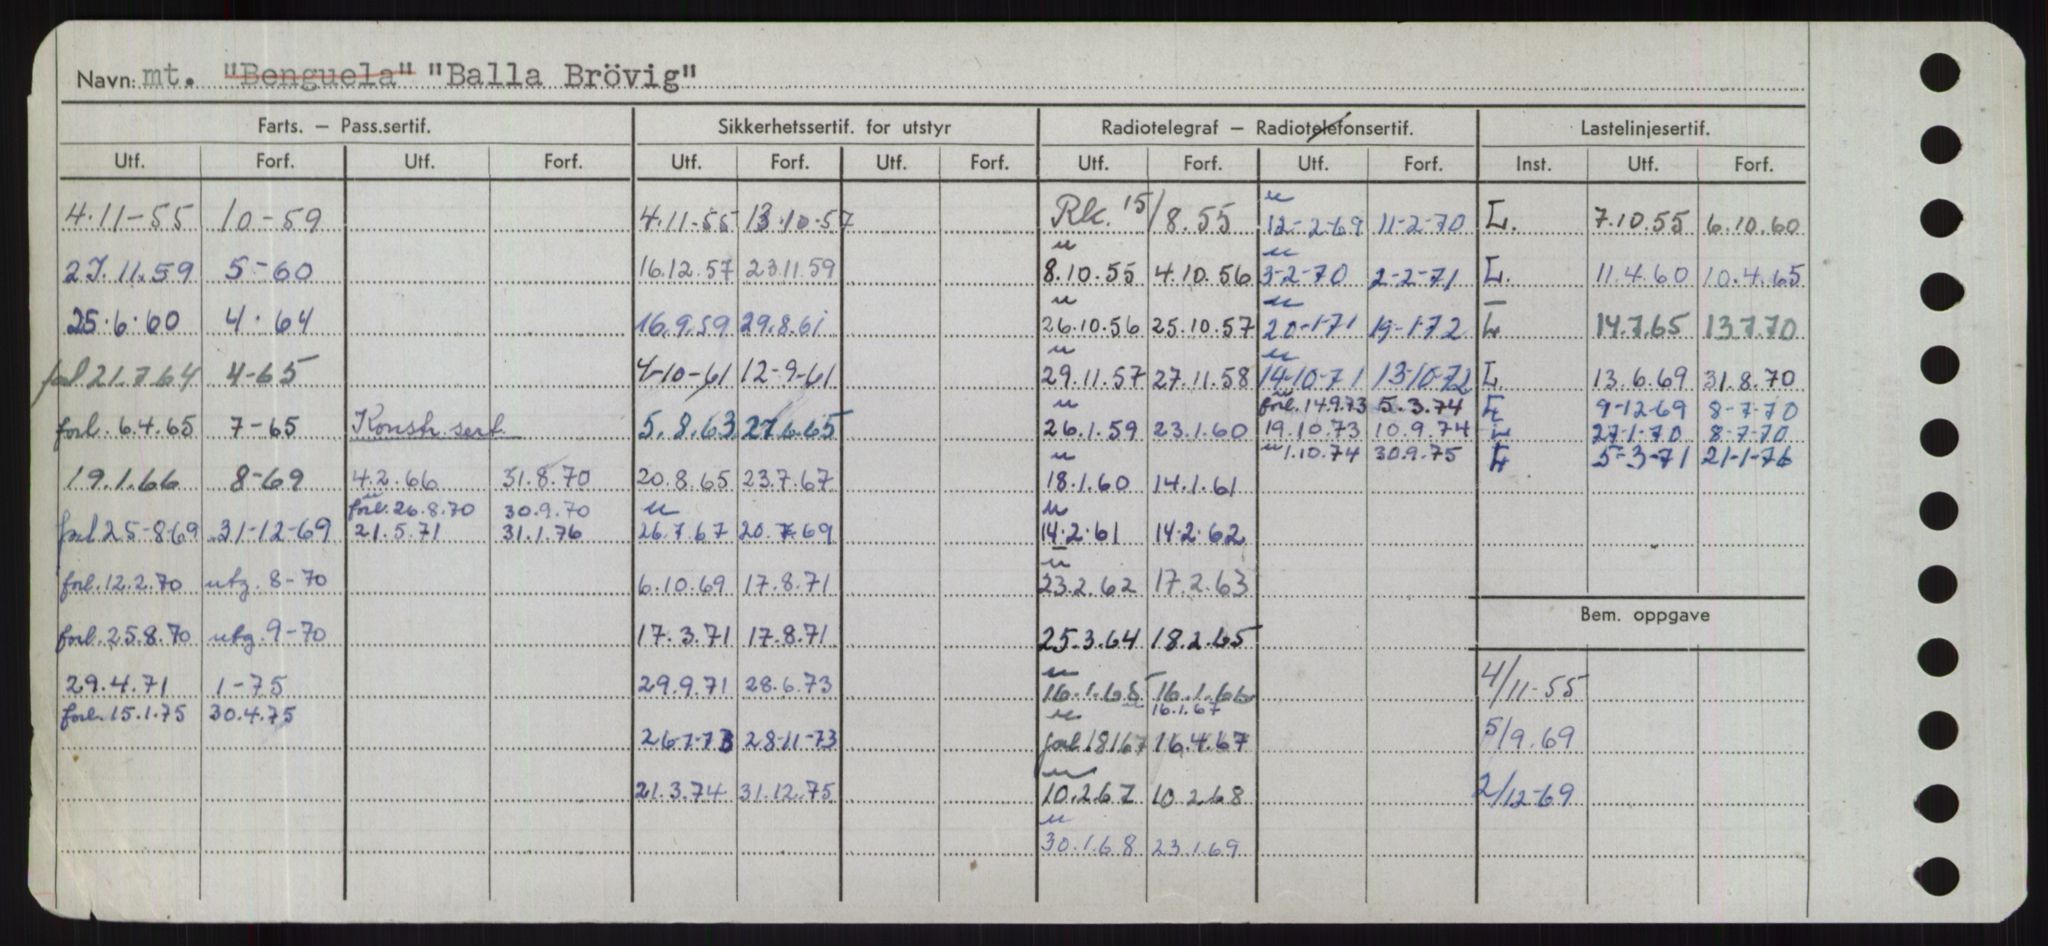 Navn: mt. "Benguela" "Balla Brövig"
Farts. — Pass.sertif. Sikkerhetssertif. for utstyr Radiotelegraf — Radiotelefonsertif. Lastelinjesertif.
Utf. Forf. Utf. Forf. Utf. Forf. Utf. Forf. Utf. Forf. Utf. Forf. Inst. Utf. Forf.
4.11-55 10-59 4.11-55 13.10-57 Rk. 15/8.55 " 12-2-69 11-2-70 L. 7.10.55 6.10.60
27.11.59 5-60 16.12.57 23.11.59 " 8.10.55 4.10.56 " 3-2-70 2-2-71 L. 11.4.60 10.4.65
25.6.60 4.64 16.9.59 29.8.61 " 26.10.56 25.10.57 " 20-1-71 19-1-72 L 14.7.65 13.7.70
forl 21.7.64 4-65 4-10-61 12-9-61 " 29.11.57 27.11.58 " 14-10-71 13-10-72 L. 13.6.69 31.8.70
" forl. 14.9.73 5.3.74 L 9-12-69 8-7-70
forl. 6.4.65 7-65 Konstr. sert. 5.8.63 27.6.65 " 26.1.59 23.1.60 19.10.73 10.9.74 L 27-1-70 8-7-70
" 1.10.74 30.9.75 L 5-3-71 21-1-76
19.1.66 8-69 4.2.66 31.8.70 20.8.65 23.7.67 " 18.1.60 14.1.61
forl. 26.8.70 30.9.70
forl 25-8-69 31-12-69 21.5.71 31.1.76 " 26.7.67 20.7.69 " 14.2.61 14.2.62
forl. 12.2.70 utg. 8-70 6.10.69 17.8.71 " 23.2.62 17.2.63
Bem. oppgave
forl. 25.8.70 utg. 9-70 17.3.71 17.8.71 25.3.64 18.2.65
29.4.71 1-75 29.9.71 28.6.73 " 16.1.65 16.1.66 4/11-55
forl. 15.1.75 30.4.75 " 16.1.67
26-7-73 28-11-73 " forl. 18167 16.4.67 5/9.69
21.3.74 31.12.75 " 10.2.67 10.2.68 2/12-69
" 30.1.68 23.1.69